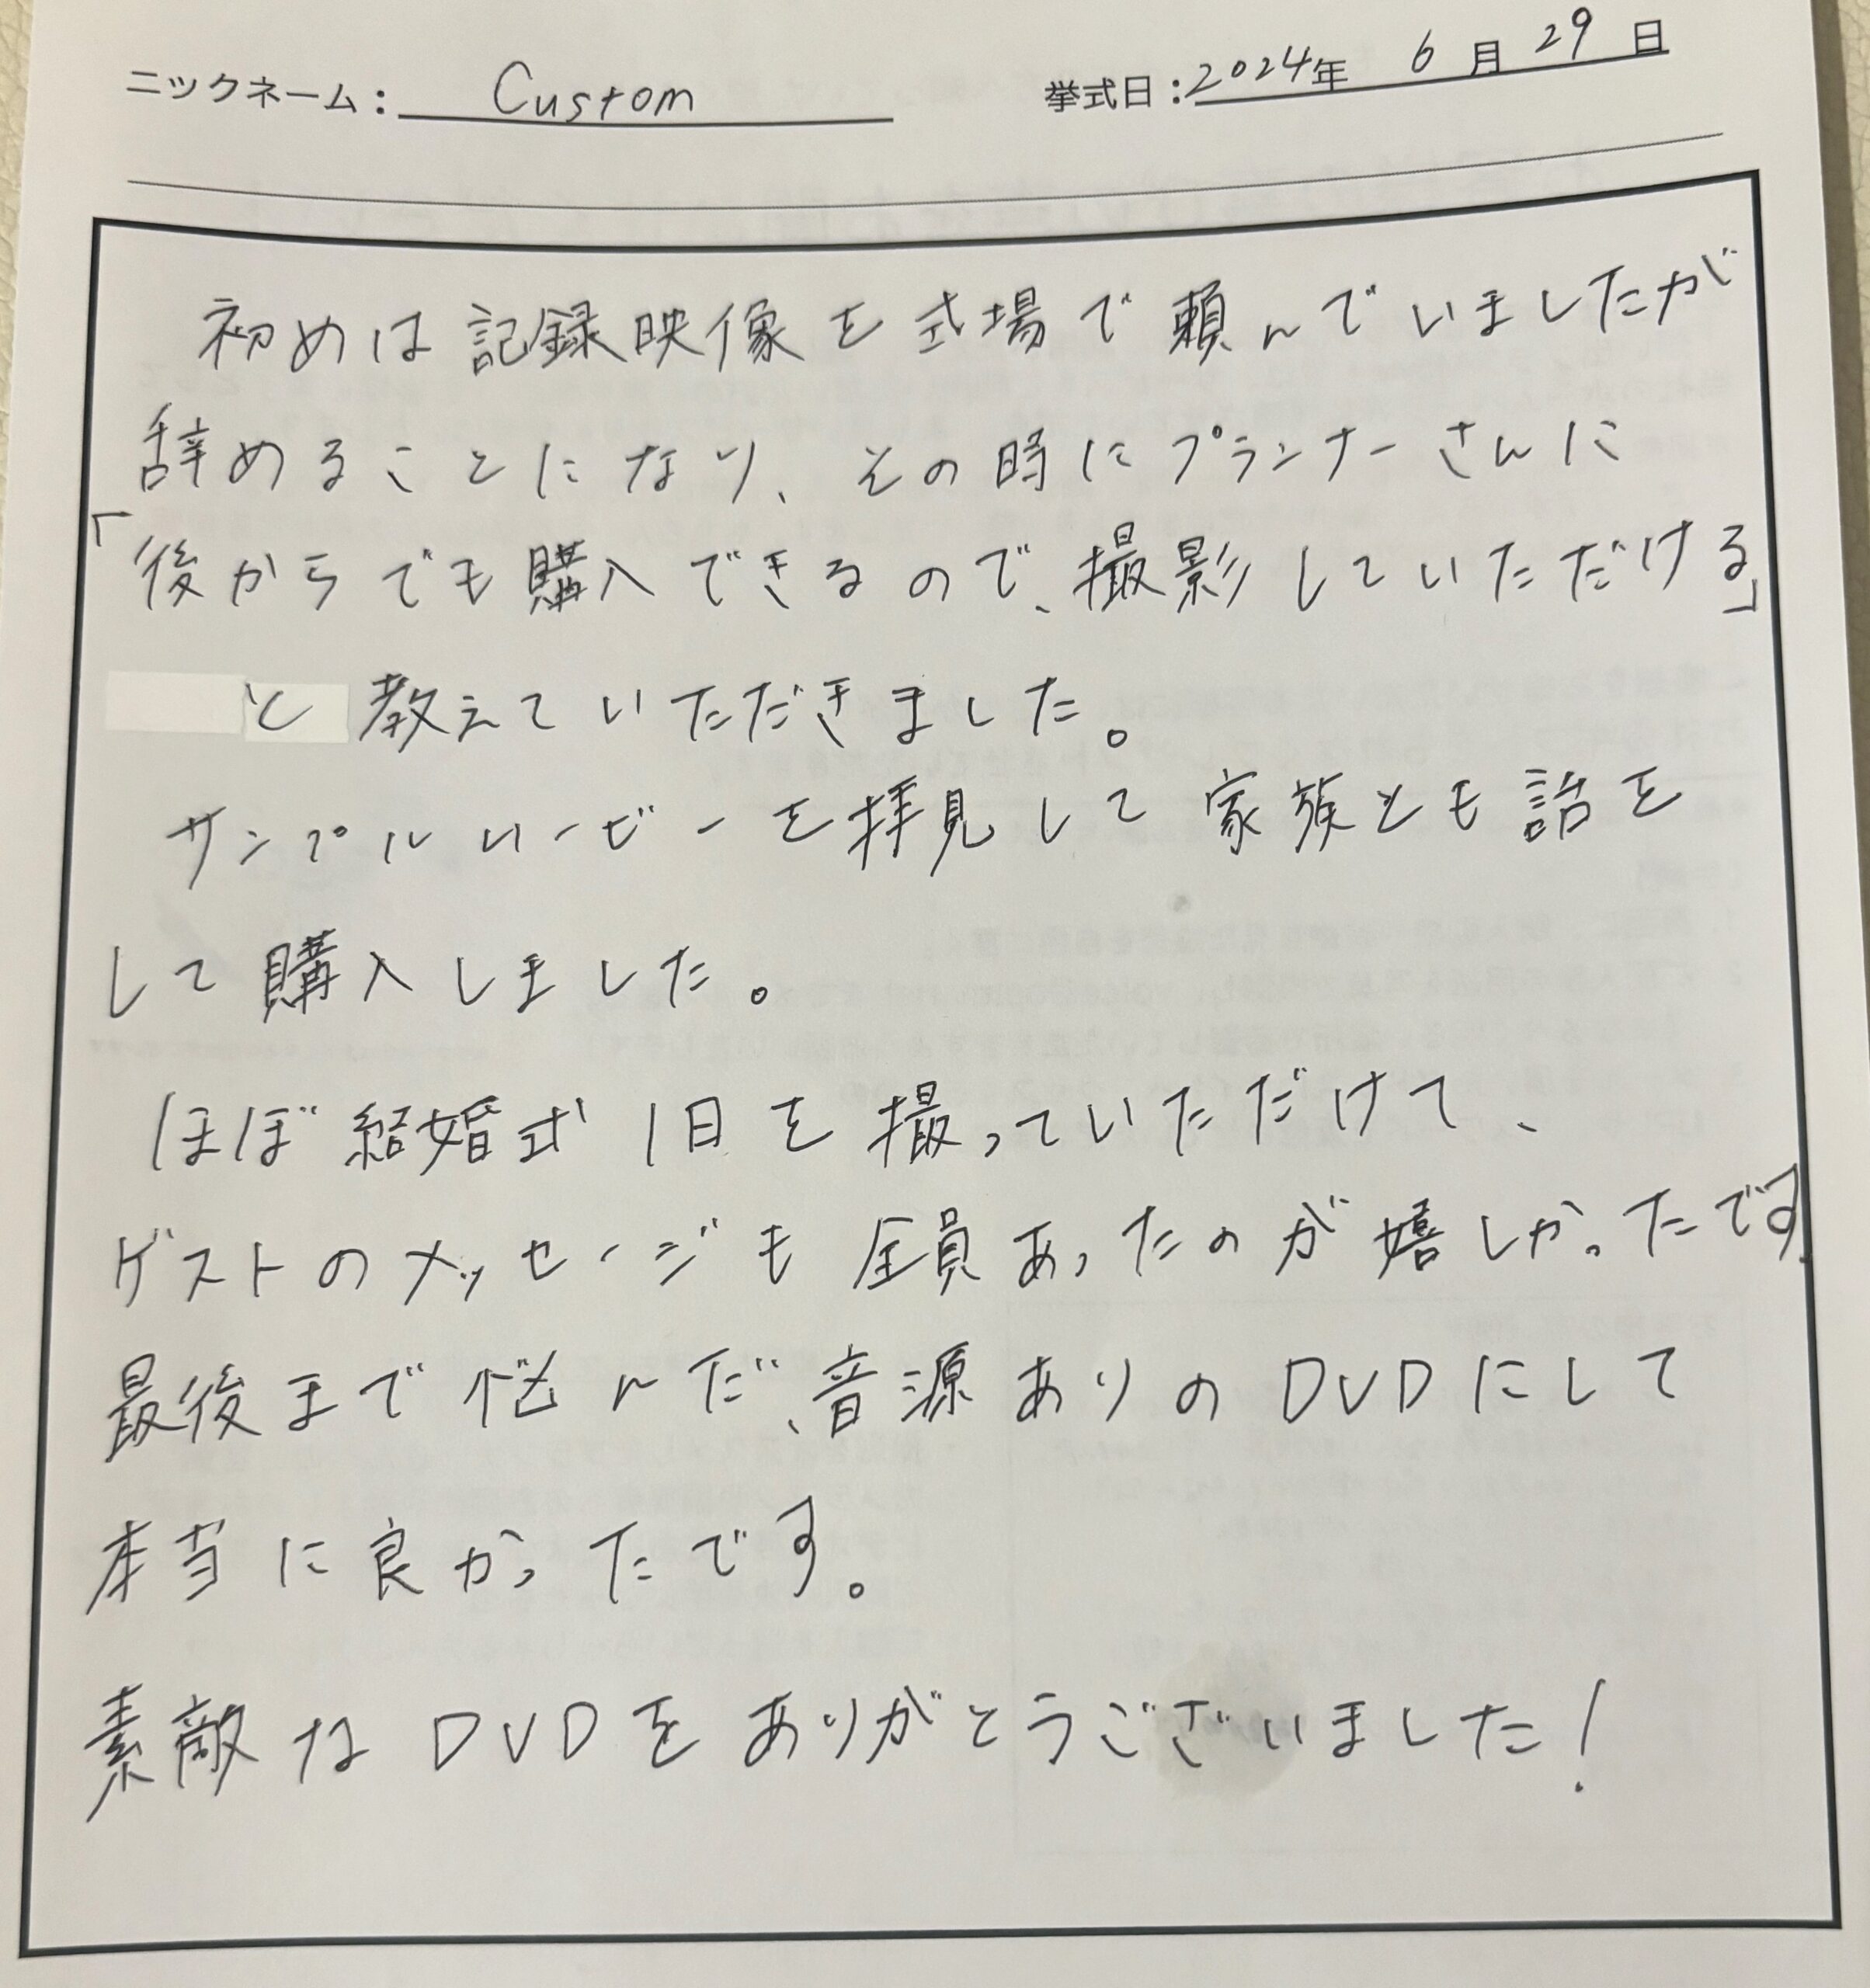 ニックネーム： Custom 挙式日：2024年 6月 29日
初めは記録映像を式場で頼んでいましたが
辞めることになり、その時にプランナーさんに
「後からでも購入できるので、撮影していただける」
と教えていただきました。
サンプルムービーを拝見して家族とも話を
して購入しました。
ほぼ結婚式1日を撮っていただけて、
ゲストのメッセージも全員あったのが嬉しかったです。
最後まで悩んだ、音源ありのDVDにして
本当に良かったです。
素敵なDVDをありがとうございました！